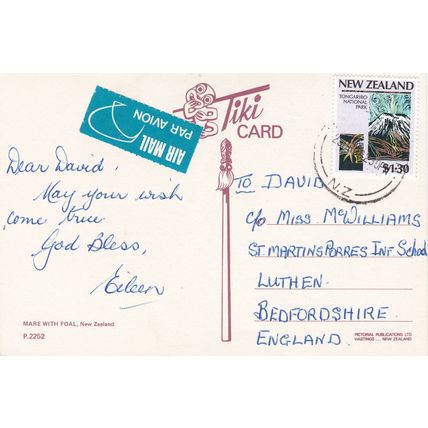 AIR MAIL
PAR AVION
Tiki
CARD
NEW ZEALAND
TONGARIRO
NATIONAL
PARK
$1.30
N.Z
Dear David,
May your wish
come true
God Bless,
Eileen
TO DAVID
c/o MISS McWILLIAMS
ST MARTINS PORRES INF School
LUTHEN.
BEDFORDSHIRE.
ENGLAND.
MARE WITH FOAL, New Zealand
P.2252
PICTORIAL PUBLICATIONS LTD
HASTINGS ... NEW ZEALAND